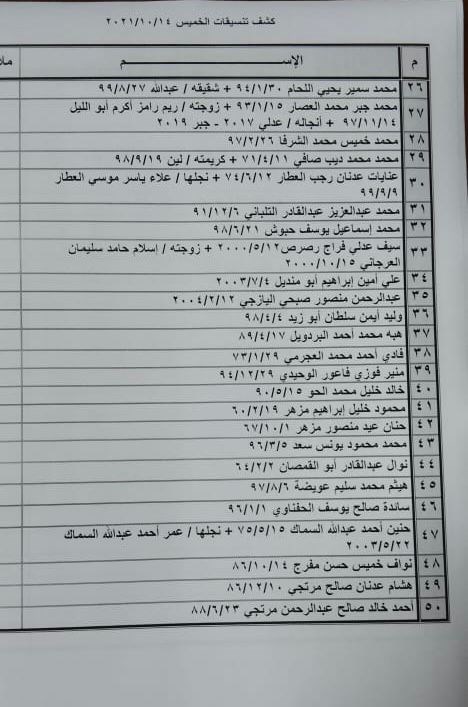 كشف تنسيقات الخميس ٢٠٢١/١٠/١٤
م الإســـــــــــم ملا
٢٦ محمد سمير يحيي اللحام ٩٤/١/٣٠ + شقيقه / عبدالله ٩٩/٨/٢٧
٢٧ محمد جبر محمد العصار ٩٣/١/١٥ + زوجته / ريم رامز أكرم أبو الليل
٩٧/١١/١٤ + أنجاله / عدلي ٢٠١٧ - جبر ٢٠١٩
٢٨ محمد خميس محمد الشرفا ٩٧/٢/٢٦
٢٩ محمد محمد ديب صافي ٧١/٤/١١ + كريمته / لين ٩٨/٩/١٩
٣٠ عنايات عدنان رجب العطار ٧٤/٦/١٢ + نجلها / علاء ياسر موسي العطار
٩٩/٩/٩
٣١ محمد عبدالعزيز عبدالقادر التلباني ٩١/١٢/٦
٣٢ محمد إسماعيل يوسف حبوش ٩٨/٦/٢١
٣٣ سيف عدلي فراج رصرص ٢٠٠٠/٥/١٢ + زوجته / إسلام حامد سليمان
العرجاني ٢٠٠٠/١٠/١٥
٣٤ علي أمين إبراهيم أبو منديل ٢٠٠٣/٧/٤
٣٥ عبدالرحمن منصور صبحي اليازجي ٢٠٠٤/٢/١٢
٣٦ وليد أيمن سلطان أبو زيد ٩٨/٤/٤
٣٧ هبه محمد أحمد البردويل ٨٩/٤/١٧
٣٨ فادي أحمد محمد العجرمي ٧٣/١/٢٩
٣٩ منير فوزي فاعور الوحيدي ٩٤/١٢/٢٩
٤٠ خالد خليل محمد الحو ٩٠/٥/١٥
٤١ محمود خليل إبراهيم مزهر ٦٠/٢/١٩
٤٢ حنان عيد منصور مزهر ٦٧/١٠/١
٤٣ محمد محمود يونس سعد ٩٦/٣/٥
٤٤ نوال عبدالقادر أبو القمصان ٦٤/٢/٢
٤٥ هيثم محمد سليم عويضة ٩٧/٨/٦
٤٦ ساندة صالح يوسف الحفناوي ٩٦/١/١
٤٧ حنين أحمد عبدالله السماك ٧٥/٥/١٥ + نجلها / عمر أحمد عبدالله السماك
٢٠٠٣/٥/٢٢
٤٨ نواف خميس حسن مفرج ٨٦/١٠/١٤
٤٩ هشام عدنان صالح مرتجي ٨٦/١٢/١٠
٥٠ أحمد خالد صالح عبدالرحمن مرتجي ٨٨/٦/٢٣